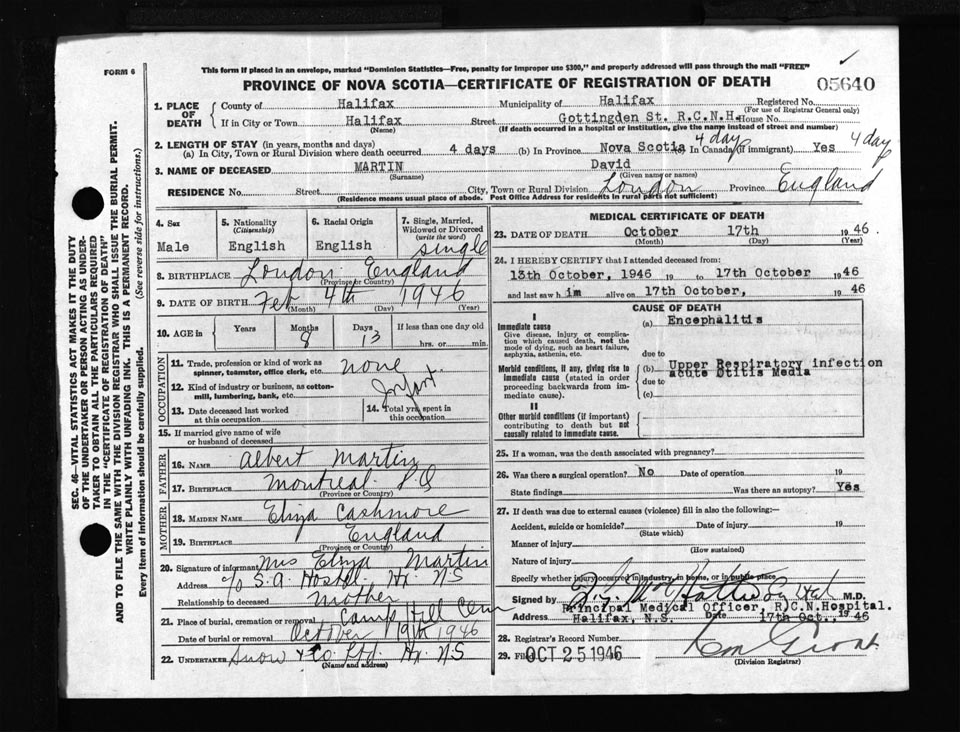 FORM 6
This form if placed in an envelope, marked "Dominion Statistics—Free, penalty for improper use $300," and properly addressed will pass through the mail "FREE"
PROVINCE OF NOVA SCOTIA—CERTIFICATE OF REGISTRATION OF DEATH
05640
1. PLACE OF DEATH
County of Halifax Municipality of Halifax Registered No.
(For use of Registrar General only)
If in City or Town Halifax Street Gottingden St. R.C.N.H. House No.
(Name) (If death occurred in a hospital or institution, give the name instead of street and number)
2. LENGTH OF STAY (in years, months and days)
(a) In City, Town or Rural Division where death occurred 4 days (b) In Province Nova Scotia (c) In Canada (if immigrant) Yes 4 day 4 day
3. NAME OF DECEASED MARTIN David
(Surname) (Given name or names)
RESIDENCE No. Street City, Town or Rural Division London Province England
(Residence means usual place of abode. Post Office Address for residents in rural parts not sufficient)
4. Sex Male
5. Nationality (Citizenship) English
6. Racial Origin English
7. Single, Married, Widowed or Divorced (write the word) single
8. BIRTHPLACE London England
(Province or Country)
9. DATE OF BIRTH Feb 4th 1946
(Month) (Day) (Year)
10. AGE in Years Months 8 Days 13 If less than one day old hrs. or min.
OCCUPATION
11. Trade, profession or kind of work as spinner, teamster, office clerk, etc. none
12. Kind of industry or business, as cotton-mill, lumbering, bank, etc. Infant
13. Date deceased last worked at this occupation
14. Total yrs. spent in this occupation
15. If married give name of wife or husband of deceased
FATHER
16. NAME Albert Martin
17. BIRTHPLACE Montreal P.Q
(Province or Country)
MOTHER
18. MAIDEN NAME Eliza Cashmore
19. BIRTHPLACE England
(Province or Country)
20. Signature of informant Mrs Eliza Martin
Address c/o S.A. Hostel, Hx. NS
Relationship to deceased Mother
21. Place of burial, cremation or removal Camp Hill Cem
Date of burial or removal October 19th 1946
22. UNDERTAKER Snow & Co Ltd. Hx. NS
(Name and address)
MEDICAL CERTIFICATE OF DEATH
23. DATE OF DEATH October 17th 1946.
(Month) (Day) (Year)
24. I HEREBY CERTIFY that I attended deceased from:
13th October, 1946 19 to 17th October 1946
and last saw him alive on 17th October, 1946
CAUSE OF DEATH
I
Immediate cause
Give disease, injury or complication which caused death, not the mode of dying, such as heart failure, asphyxia, asthenia, etc.
(a) Encephalitis
due to
Morbid conditions, if any, giving rise to immediate cause (stated in order proceeding backwards from immediate cause).
(b) Upper Respiratory infection
acute Otitis Media
due to
(c)
II
Other morbid conditions (if important) contributing to death but not causally related to immediate cause.
25. If a woman, was the death associated with pregnancy?
26. Was there a surgical operation? No Date of operation 19
State findings Was there an autopsy? Yes
27. If death was due to external causes (violence) fill in also the following:—
Accident, suicide or homicide? Date of injury 19
(State which)
Manner of injury
(How sustained)
Nature of injury
Specify whether injury occurred in industry, in home, or in public place
Signed by M.D.
Principal Medical Officer, R.C.N.Hospital.
Halifax, N.S. Date 17th Oct., 1946
28. Registrar's Record Number
29. Filed OCT 25 1946
(Division Registrar)
SEC. 46—VITAL STATISTICS ACT MAKES IT THE DUTY OF THE UNDERTAKER OR PERSON ACTING AS UNDERTAKER TO OBTAIN ALL THE PARTICULARS REQUIRED IN THE "CERTIFICATE OF REGISTRATION OF DEATH" AND TO FILE THE SAME WITH THE DIVISION REGISTRAR WHO SHALL ISSUE THE BURIAL PERMIT.
WRITE PLAINLY WITH UNFADING INK. THIS IS A PERMANENT RECORD.
Every item of information should be carefully supplied. (See reverse side for instructions.)